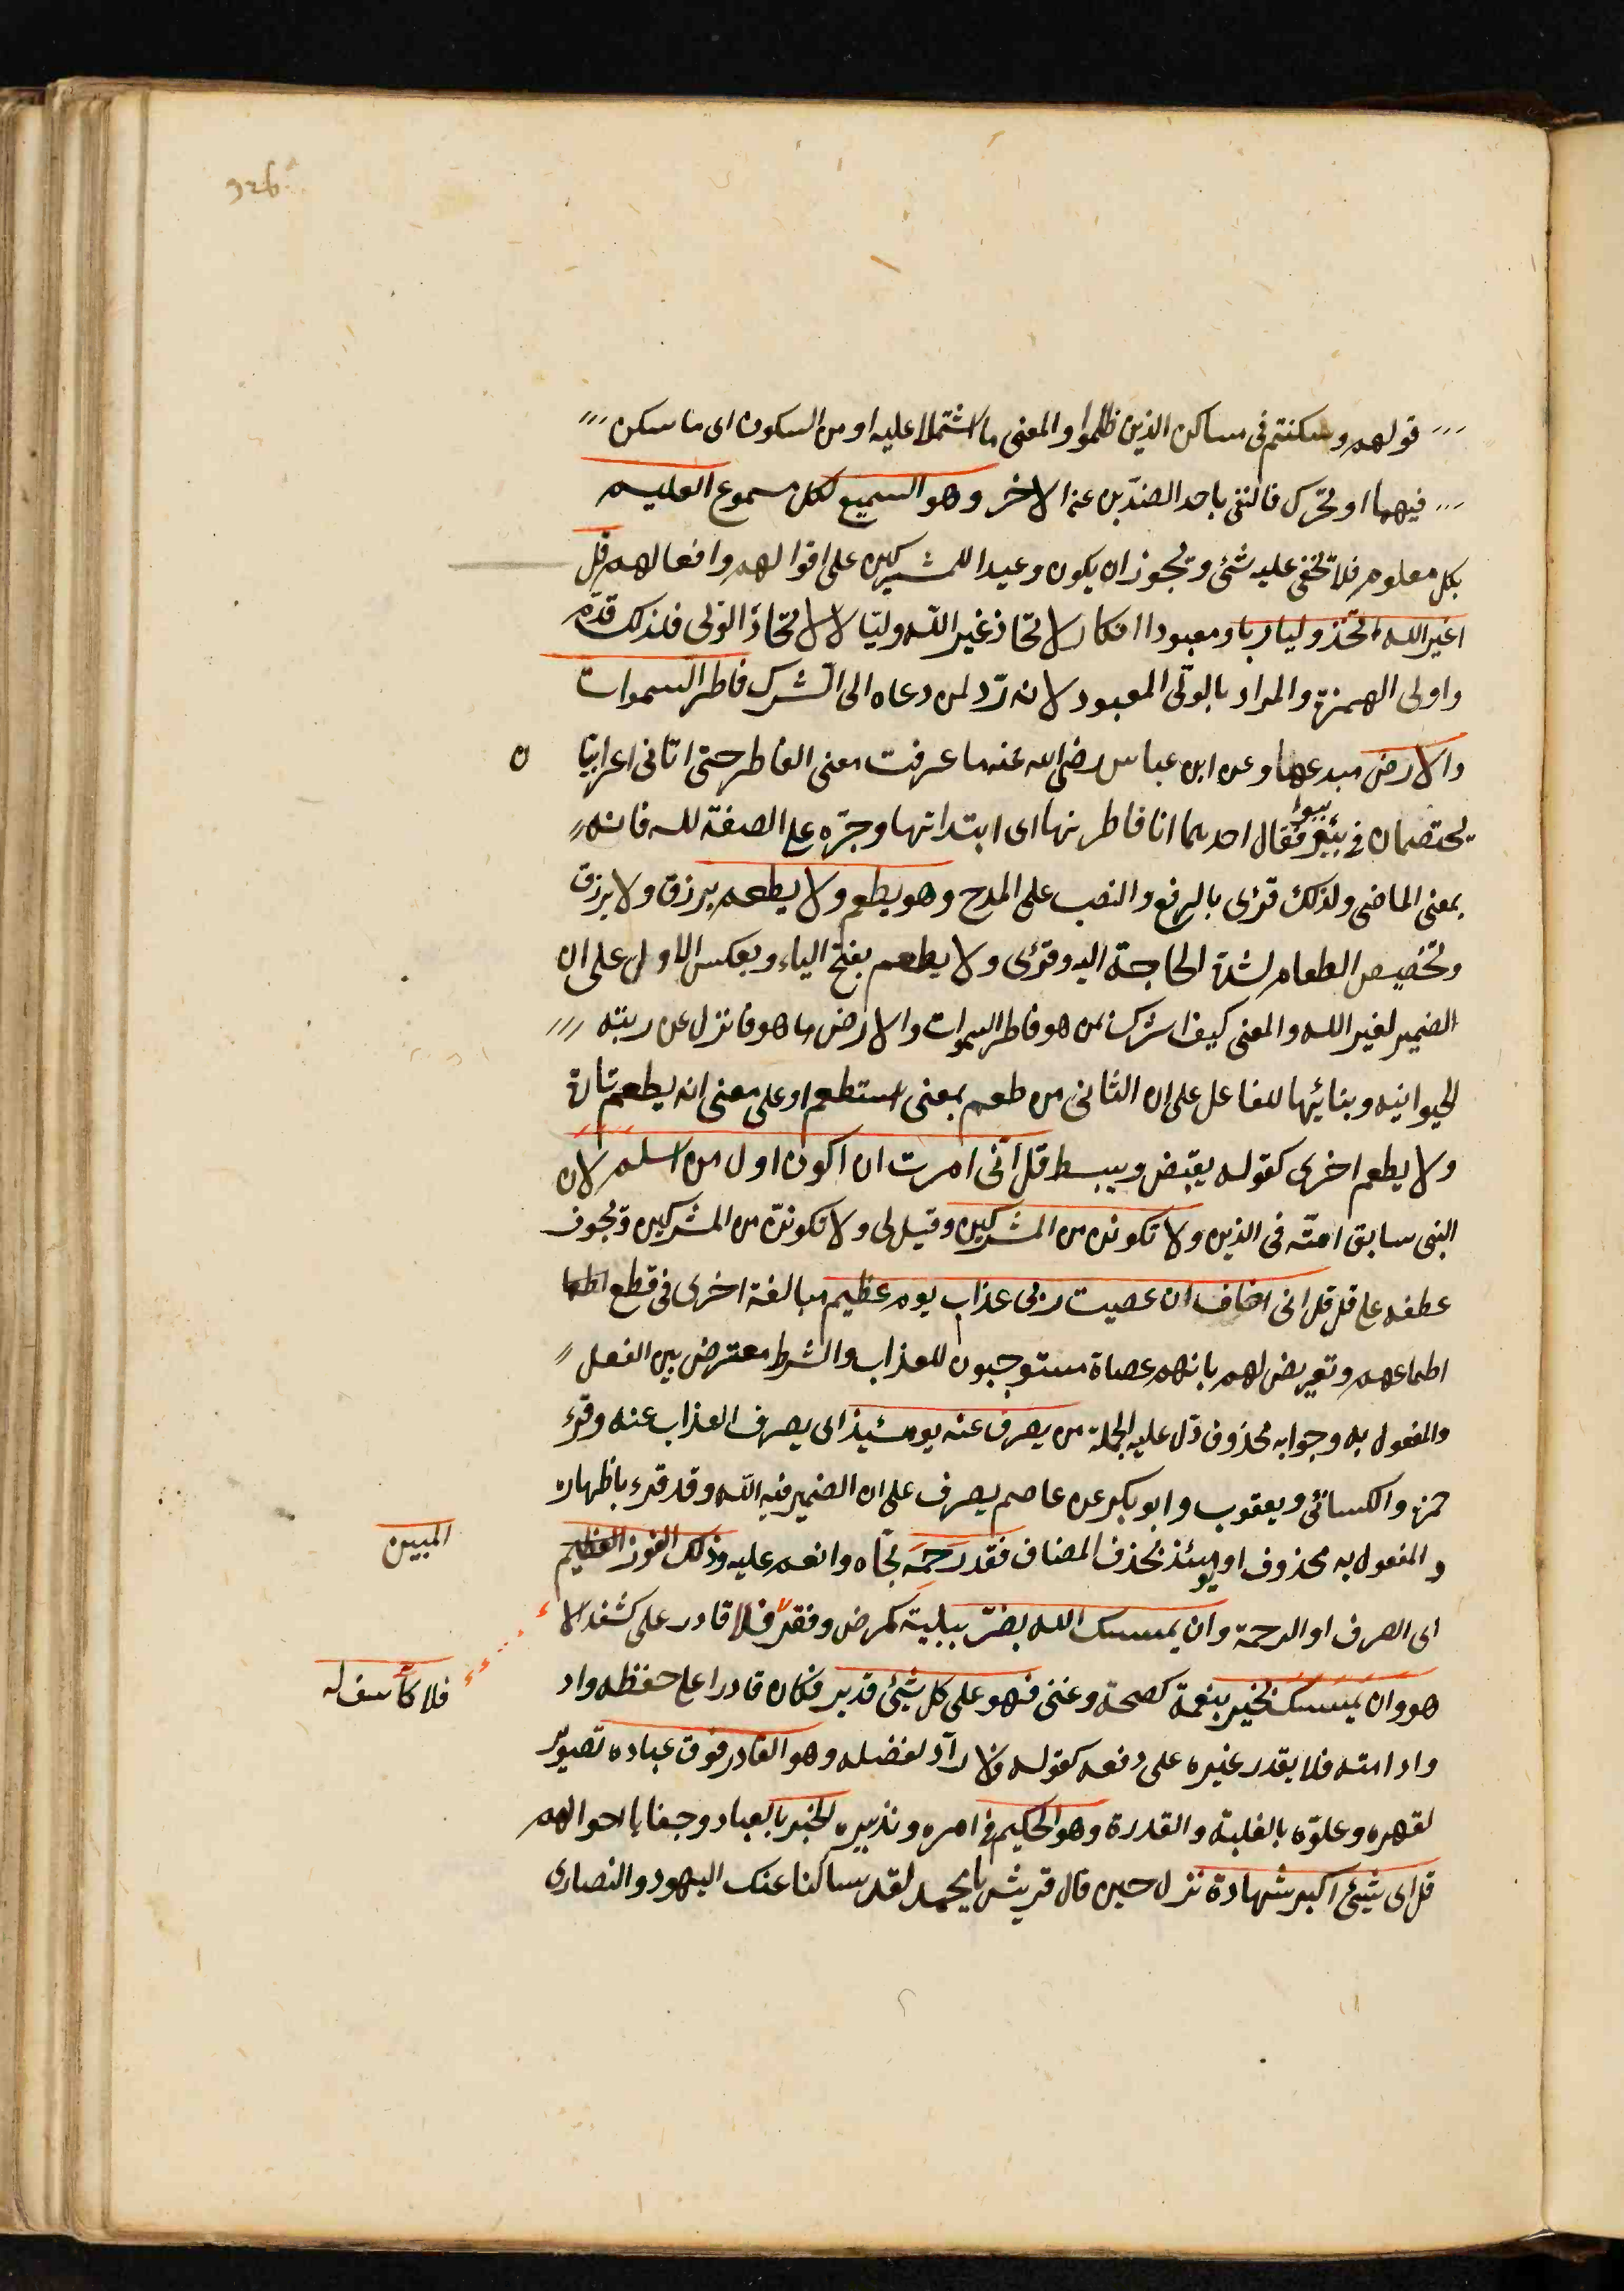 قولهم وسكنتم فى مساكن الذين ظلموا والمعنى ما اشتملا عليه او من السكون اى ما سكن
فيهما او تحرك فاكتفى باحد الضدّين عن الاخر وهو السميع لكل مسموع العليم
بكل معلوم فلا تخفى عليه شئ ويجوز ان يكون وعيدا للمشركين على اقوالهم وافعالهم قل
اغير الله اتخذ وليا ربا ومعبودا انكار لاتخاذ غير الله وليّا لا لاتخاذ الولى فلذلك قدّم
واولى الهمزة والمراد بالولّى المعبود لانه ردّ لمن دعاه الى الشرك فاطر السموات
والارض مبدعهما وعن ابن عباس رضى الله عنه ما عرفت معنى الفاطر حتى اتانى اعرابيّا
ن
يختصمان فى بئر فقال احدهما انا فاطرتها اى ابتداتها وجرّه على الصفة لله فانه
بمعنى الماضى ولذلك قرئ بالرفع والنصب على المدح وهو يطعم ولا يطعم يرزق ولا يرزق
وتخصيص الطعام لشدة الحاجة اليه وقرئ ولا يطعم بفتح الياء وبعكس الاول على ان
الضمير لغير الله والمعنى كيف اشرك بمن هو فاطر السموات والارض ما هو نازل عن رتبة
الحيوانيه وبنائهما للفاعل على ان الثانى من طعم بمعنى استطعم او على معنى انه يطعم تارة
ولا يطعم اخرى كقوله يقبض ويبسط قل انّى امرت ان اكون اول من اسلم لان
النبى سابق امتّه فى الدين ولا تكونن من المشركين وقيل لى ولا تكوننّ من المشركين ويجوز
عطفه على قل قل انى اخاف ان عصيت ربى عذاب يوم عظيم مبالغة اخرى فى قطع
اطماعهم وتعريض لهم بانهم عصاة مستوجبون للعذاب والشرط معترض بين الفعل
والمفعول به وجوابه محذوف دلّ عليه الجملة من يصرف عنه يومئيذ اى يصرف العذاب عنه وقرء
حمزة والكسائى ويعقوب وابو بكر عن عاصم يصرف على ان الضمير فيه الله وقد قرء باظهاره
والمفعول به محذوف او يومئذ بحذف المضاف فقد رحمه نجّاه وانعم عليه وذلك الفوز العظيم
المبين
اى الصرف او الرحمة وان يمسسك الله بضرّ ببلية كمرض وفقر فلا قادر على كشفه الا
هو وان يمسسك بخير بنعمة كصحة وغنى فهو على كل شيئ قدير فكان قادرا على حفظه واد
فلا كاشف له
وادامته فلا يقدر غيره على دفعه كقوله فلا رآدّ لفضله وهو القادر فوق عباده تصوير
لقهره وعلوّه بالغلبة والقدرة وهو الحكيم فى امره وتدبيره الخبير بالعباد وخفايا احوالهم
قل اى شيئ اكبر شهادة نزل حين قال قريش يا محمد لقد سالنا عنك اليهود والنصارى